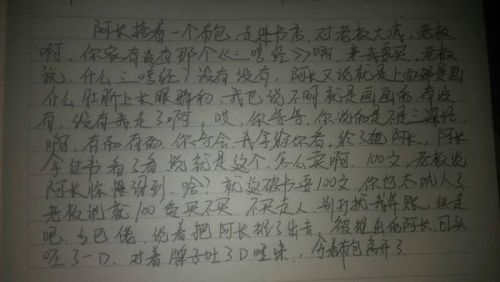 阿长揣着一个布包,走进书店,对老板大喊,老板
啊,你家有没有那个《三哼经》啊,来我要买,老板
说,什么三哼经?没有没有,阿长又说就是上面都是画
什么肚脐上长眼睛的,我也说不明就是画画的有没
有,没有我走了啊,哎,你等等,你说的是不是三海经
啊,有的有的,你等会我拿给你看,给了把阿长,阿长
拿过书看了看说就是这个,怎么卖啊,100文,老板说
阿长惊愕说到,啥?就这破书要100文,你也太坑人了
老板说就100你买不买,不买走人,别打扰我作账,快走
吧,乡巴佬,说着把阿长推了出去,被推出的阿长回头
呸了一口,对着牌子吐了口唾沫,布包离开了